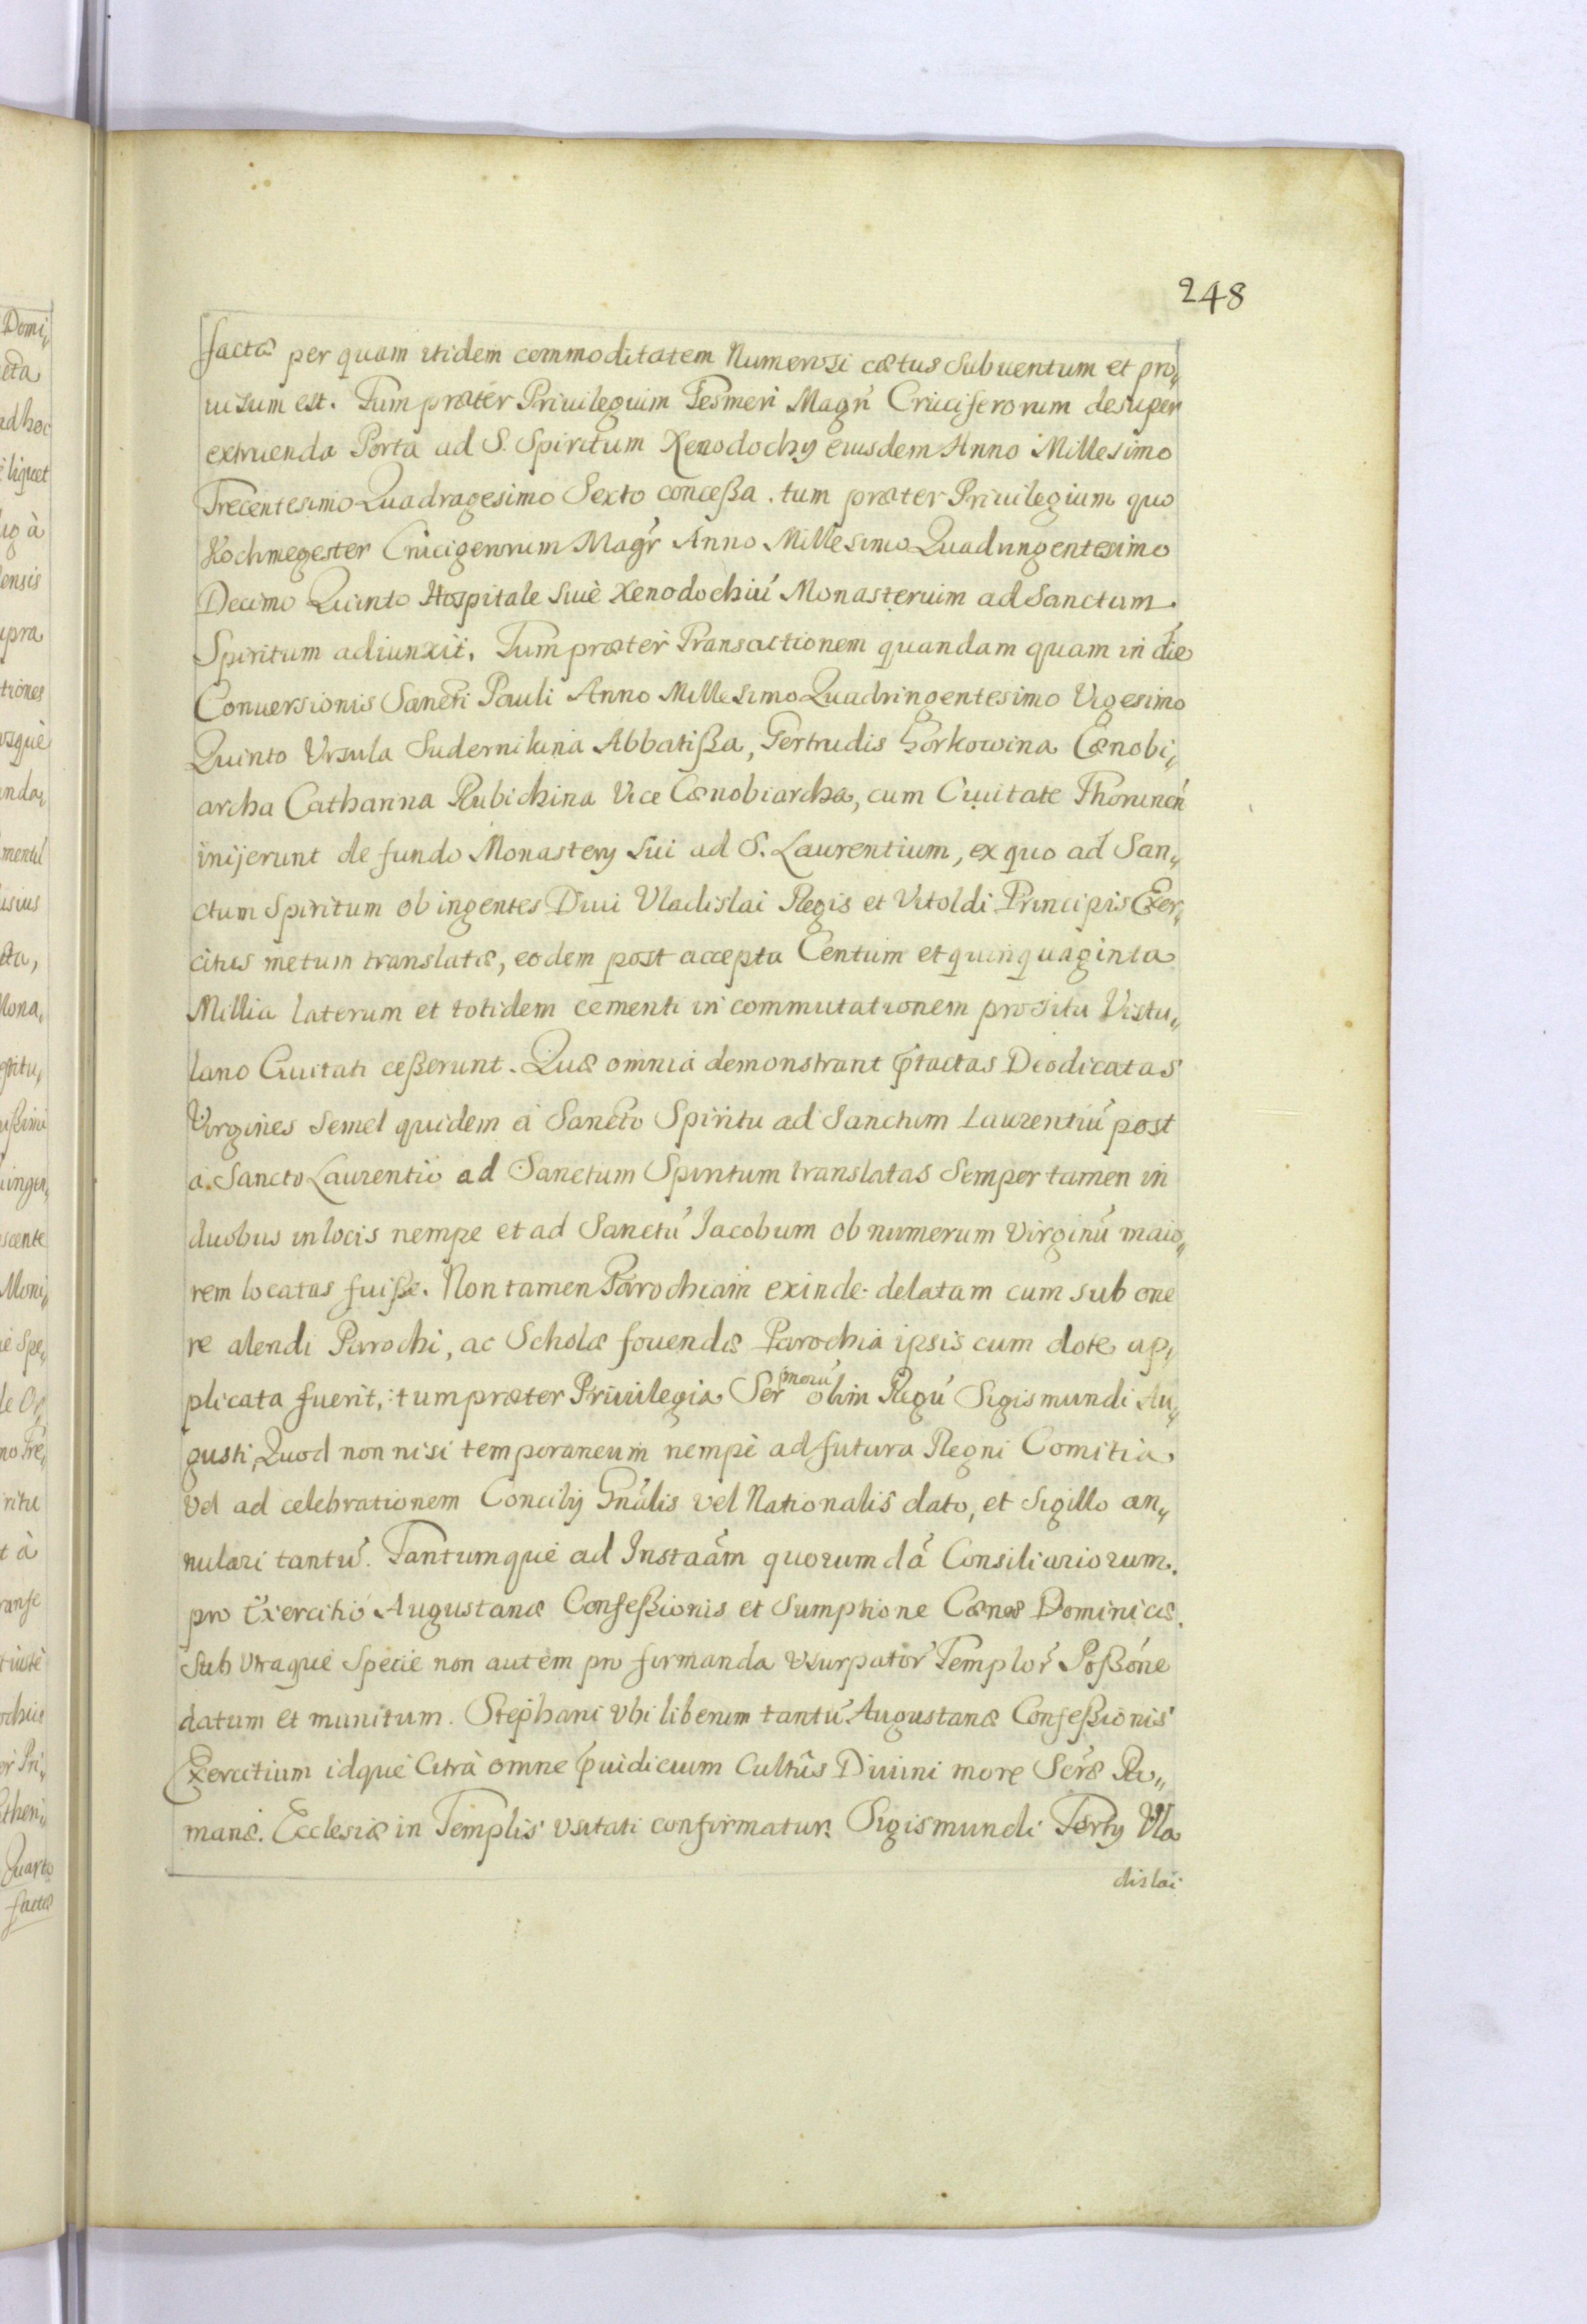 248
factæ per quam itidem commoditatem Numerosi cœtus Subuentum et pro„
uisum est. Tum præter Priuilegium Tesmeri Magri Cruciferorum desuper
extruenda Porta ad S. Spiritum Xenodochy eiusdem Anno Millesimo
Trecentesimo Quadragesimo Sexto conceßa. tum præter Priuilegium quo
Hochmegester Crucigerorum Magr Anno Millesimo Quadringentesimo
Decimo Quinto Hospitale Siuè Xenodochiú Monasterium ad Sanctum.
Spiritum adiunxit. Tum præter Transactionem quandam quam in die
Conuersionis Sancti Pauli Anno Millesimo Quadringentesimo Vigesimo
Quinto Vrsula Suderniluna Abbatißa, Gertrudis Gorkowina Cœnobi„
archa Catharina Rubichina Vice Cænobiarcha, cum Ciuitate Thorunen
inijerunt de fundo Monastery Sui ad S. Laurentium, ex quo ad San„
ctum Spiritum ob ingentes Diui Vladislai Regis et Vitoldi Principis Exer„
citus metum translatæ, eodem post accepta Centum et quinquaginta
Millia laterum et totidem cementi in commutationem pro situ Vistu„
lano Ciuitati ceßerunt. Quæ omnia demonstrant ptactas Deodicatas
Virgines Semel quidem à Sancto Spiritu ad Sanctum Laurentiú post
à Sancto Laurentio ad Sanctum Spiritum translatas Semper tamen in
duobus in locis nempe et ad Sanctú Jacobum ob numerum Virginú maio„
rem locatas fuiße. Non tamen Parochiam exinde delatam cum sub one
re alendi Parochi, ac Scholæ fouendæ Parochia ipsis cum dote ap„
plicata fuerit, tum præter Priuilegia Sermorú olim Regú Sigismundi Au„
gusti, Quod non nisi temporaneum nempè ad futura Regni Comitia
vel ad celebrationem Concily Gnalis vel Nationalis dato, et Sigillo an„
nulari tantú. Tantumque ad Instaam quorumdá Consiliariorum.
pro Exercitio Augustanæ Confeßionis et Sumptione Cœnæ Dominicæ
Sub Vtraque Specie non autem pro firmanda Vsurpator Templor Poßone
datum et munitum. Stephani Vbi liberum tantú Augustanæ Confeßionis
Exercitium idque Citrà omne puidicium Cultûs Diuini more Scræ Ro„
manæ. Ecclesiæ in Templis Vsitati confirmatur. Sigismundi Terty Vla
dislai